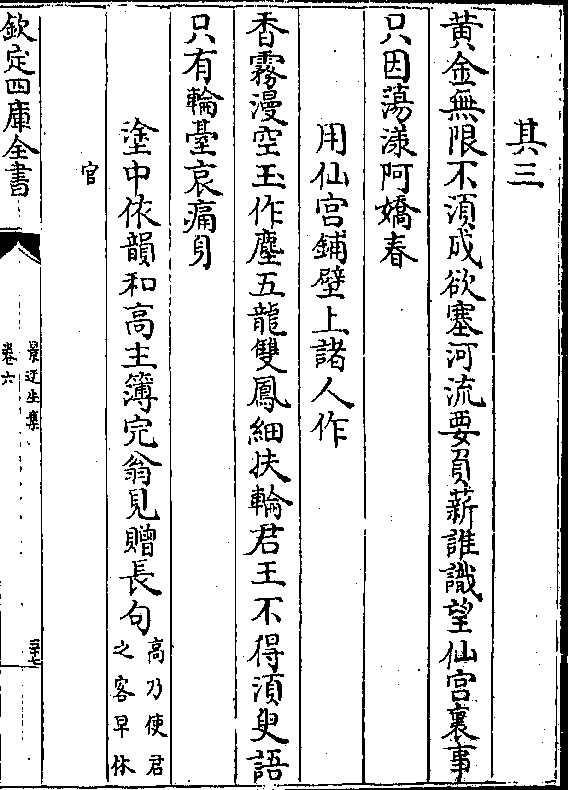 其三
黄金無限不湏成欲塞河流要負薪誰識望仙宫裏事
只因蕩漾阿嬌春
用仙宫鋪壁上諸人作
香霧漫空玉作塵五龍雙鳳細扶輪君王不得湏臾語
只有輪臺哀痛身
塗中依韻和高主簿完翁見贈長句高乃使君
之客早休
官
欽定四庫全書
景迂生集
卷六